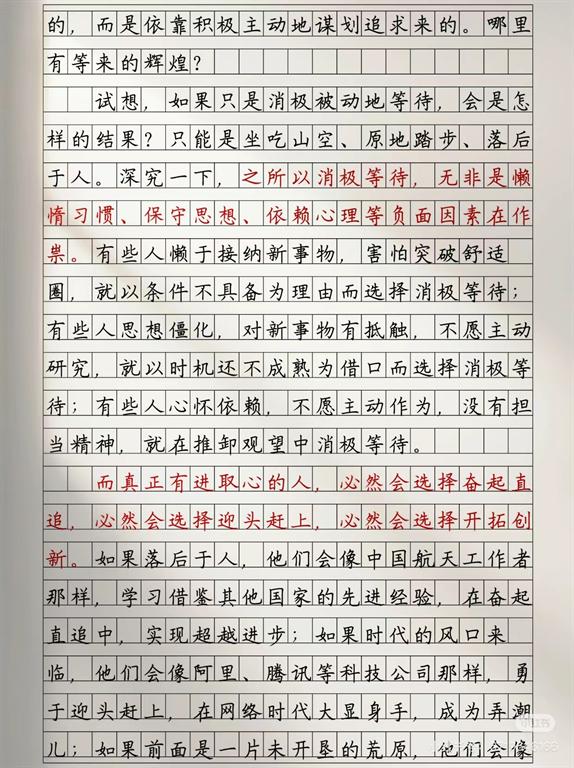 的，而是依靠积极主动地谋划追求来的。哪里
有等来的辉煌？
试想，如果只是消极被动地等待，会是怎
样的结果？只能是坐吃山空、原地踏步、落后
于人。深究一下，之所以消极等待，无非是懒
惰习惯、保守思想、依赖心理等负面因素在作
祟。有些人懒于接纳新事物，害怕突破舒适
圈，就以条件不具备为理由而选择消极等待；
有些人思想僵化，对新事物有抵触，不愿主动
研究，就以时机还不成熟为借口而选择消极等
待；有些人心怀依赖，不愿主动作为，没有担
当精神，就在推卸观望中消极等待。
而真正有进取心的人，必然会选择奋起直
追，必然会选择迎头赶上，必然会选择开拓创
新。如果落后于人，他们会像中国航天工作者
那样，学习借鉴其他国家的先进经验，在奋起
直追中，实现超越进步；如果时代的风口来
临，他们会像阿里、腾讯等科技公司那样，勇
于迎头赶上，在网络时代大显身手，成为弄潮
儿；如果前面是一片未开垦的荒原，他们会像
小红书